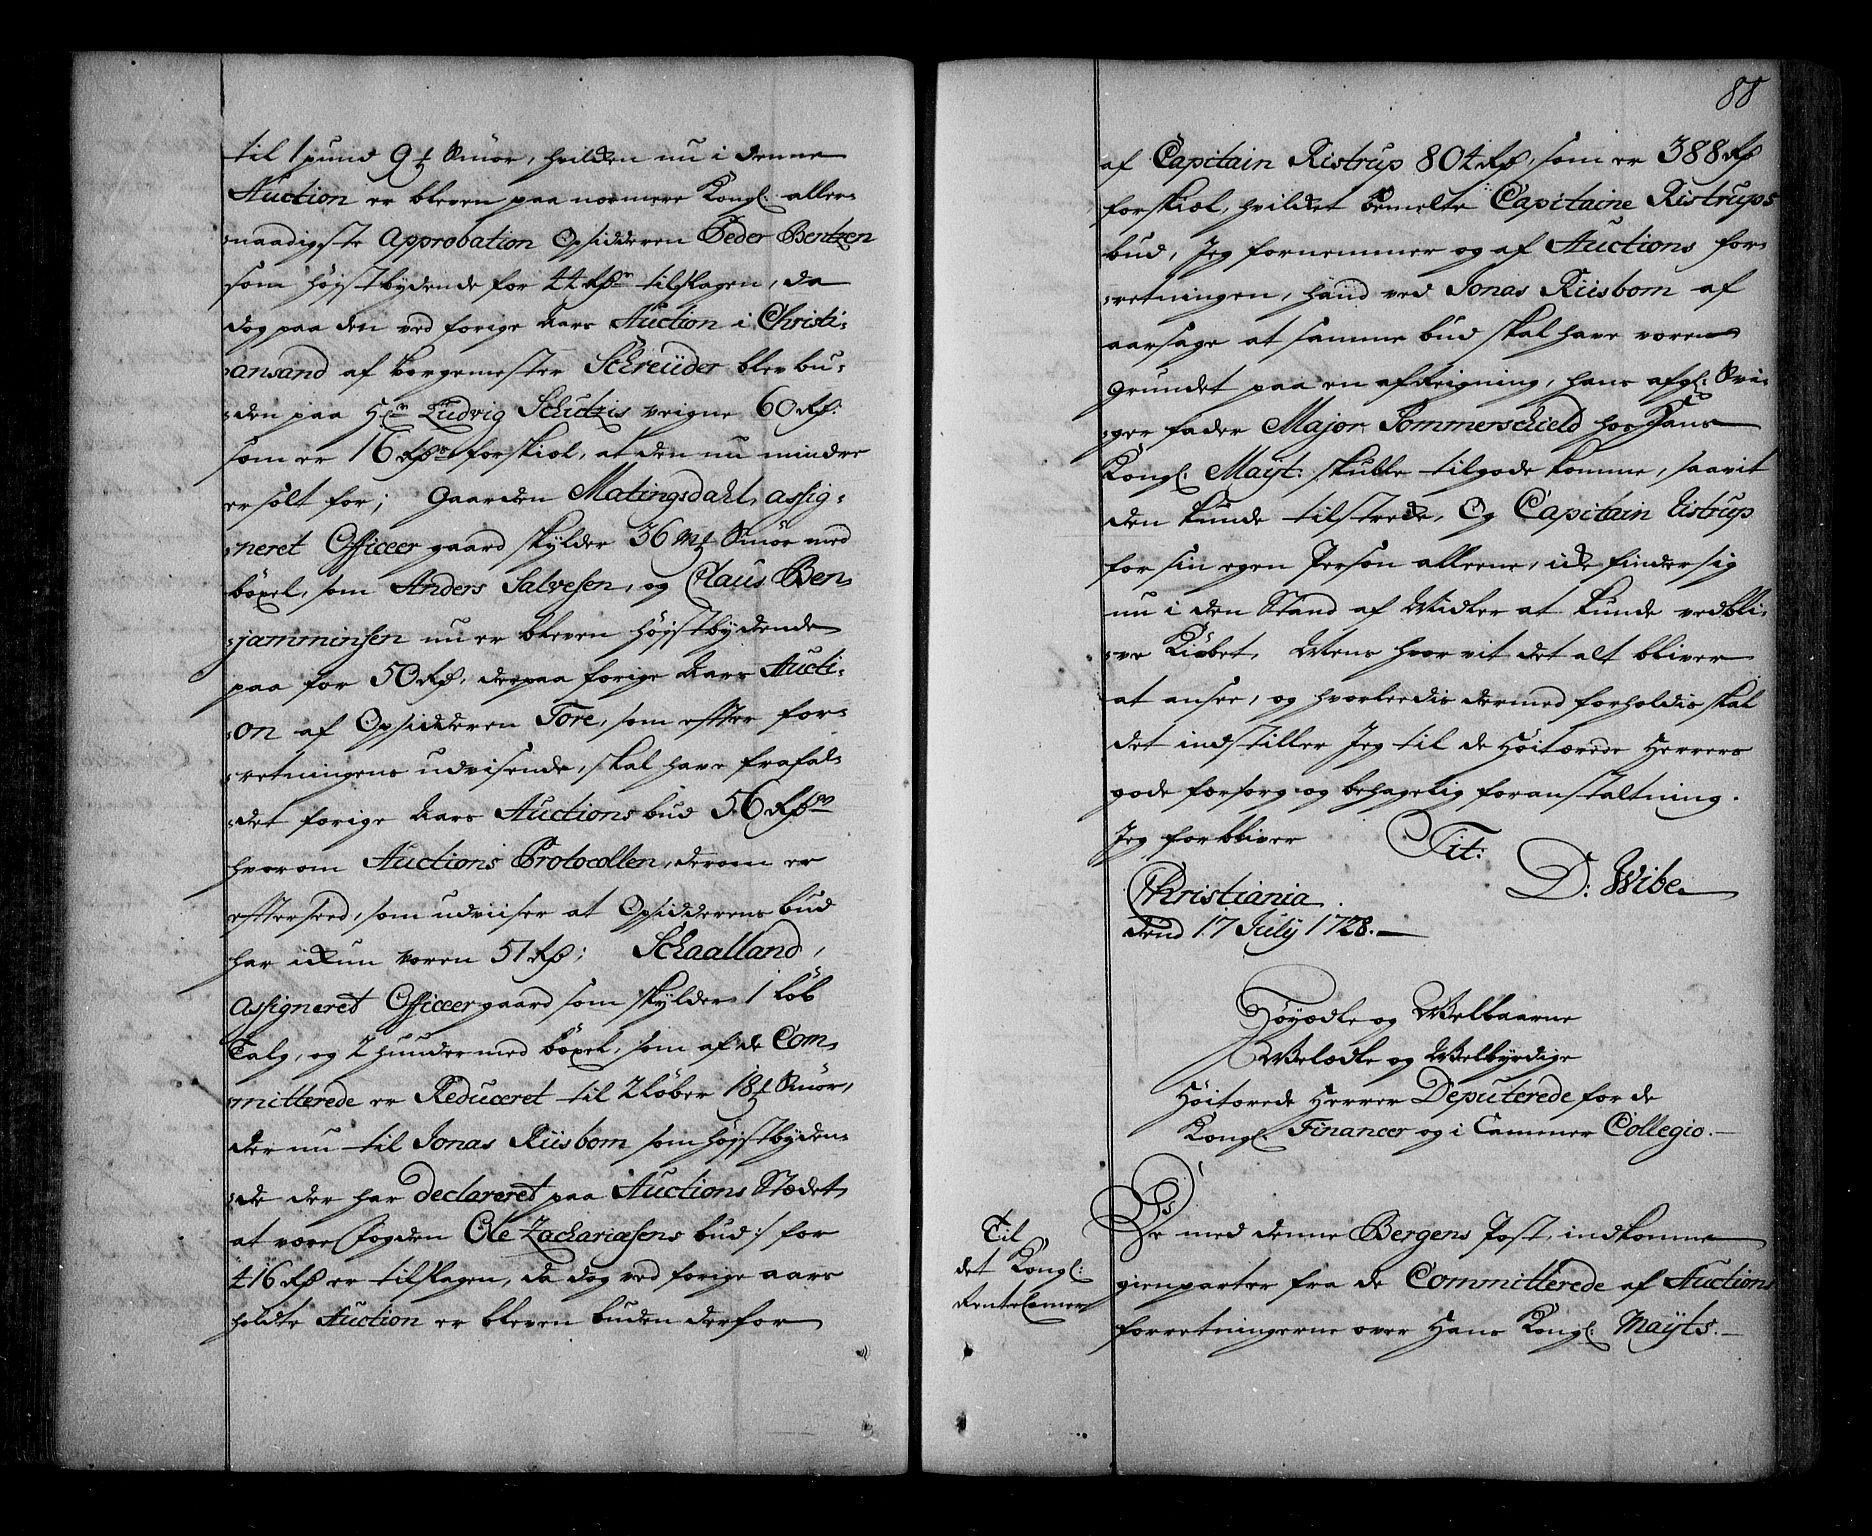 til 1 pund 9 ℔ Smör, hvilken nu i denne
Auction er bleven paa nærmere Kongl: aller-
:naadigste Approbation Opsidderen Peder Bentzen
som høystbydende for 44 Rdr tilslagen, da
dog paa den ved forige Aars Auction i Christi-
:ansand af Borgemester Schreüder blev bu-
:den paa Hr Ludvig Schutzis veigne 60 Rd:
som er 16 Rdrs forskiæl, at den nu mindre
er solt for; Gaarden Matingsdahl, assig-
:neret Officeer gaard skylder 36 M℔ Smör med
böxel, som Anders Salvesen, og Claus Ben-
:jamminsen nu er bleven høystbydende
paa for 50 Rd, derpaa forige Aars Aucti-
:on af Opsidderen Tore, som effter for-
:retningens udvisende, skal have frafal-
:det forige Aars Auctions bud 56 Rdr
hvorom Auctions Protocollen, derom er
effterseed, som udviiser at Opsidderens bud
har ikkun væren 51 Rd; Schaalland,
assigneret Officeer gaard som skylder 1 Løb
Talg, og 2 hunder med böxel, som af de Com-
:mitterede er Reduceret til 2 Løber 18 ℔ Smör,
der nu til Jonas Riisbom som høystbyden-
:de der har declareret paa Auctions Stædet
at være Fogden Ole Zachariæsens bud :/ for
416 Rd er tilslagen, da dog ved forige aars
holdte Auction er bleven buden derfor
88
af Capitain Ristrup 804 Rd, som er 388 Rd
forskiæl, hvilket bemelte Capitaine Ristrups
bud, Jeg fornemmer og af Auctions for-
:retningen, hand ved Jonas Riisbom af
aarsage at samme bud skal have væren
grundet paa en afreigning, hans afgl: Svi-
:ger fader Major Sommerschield hos Hans
Kongl: Mayt: skulle tilgode komme, saavit
den kunde tilstrede, Og Capitain Ristrup
for sin egen Person alleene, icke finder sig
nu i den Stand af Midler at kunde vedbli-
:ve Kiøbet, Mens hvor vit det alt bliver
at ansee, og hvorleedis dermed forholdis skal
det indstiller Jeg til de Høitærede Herrers
gode forsorg og behagelig foranstaltning.
Jeg forbliver Tit:
D: Wibe
Christiania
dend 17 July 1728.
Høyædle og Velbaarne
Velædle og Velbyrdige
Høitærede Herrer Deputerede for de
Kongl: Financer og i Cammer Collegio.
Til
det Kongl:
RenteCamer
De med denne Bergens Post, indkomne
gienparter fra de Committerede af Auctions
forretningerne over Hans Kongl: Mayts.